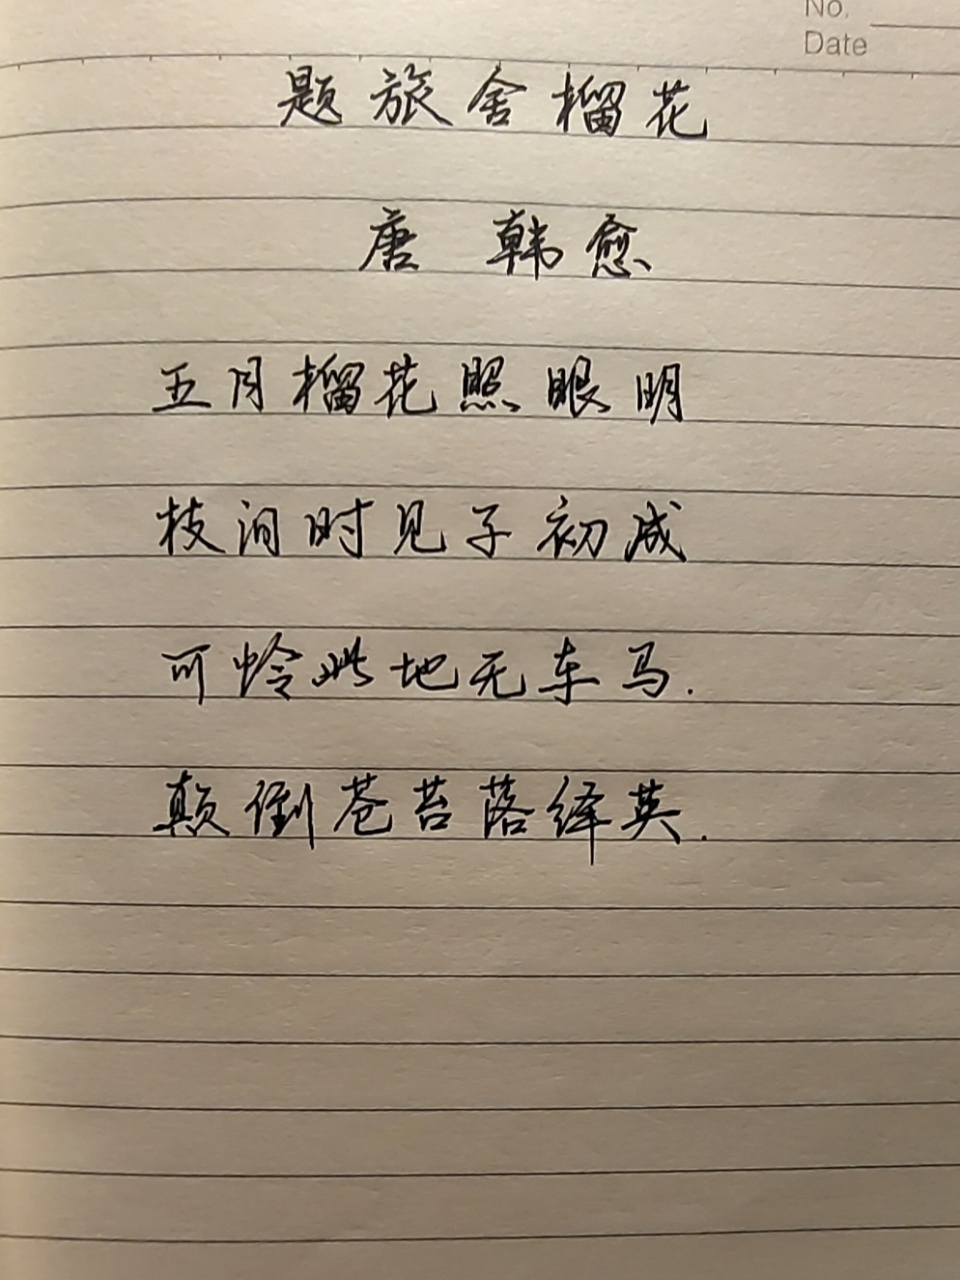 No.
Date
题旅舍榴花
唐 韩愈
五月榴花照眼明
枝间时见子初成
可怜此地无车马.
颠倒苍苔落绛英.